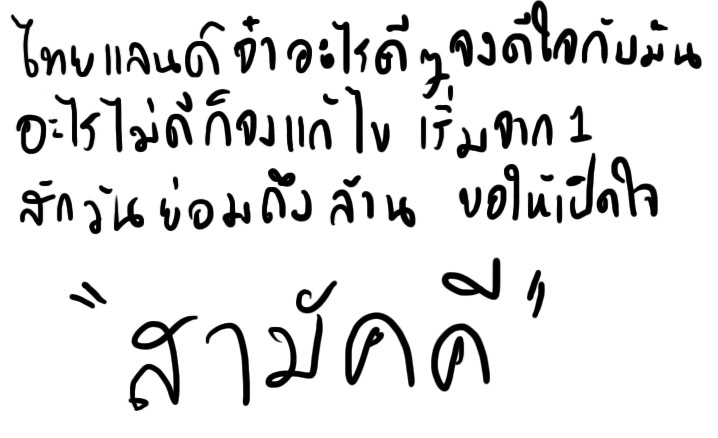 ไทยแลนด์ จ๋า อะไรดีๆ จงดีใจกับมัน
อะไรไม่ดีก็จงแก้ไข เริ่มจาก 1
สักวันย่อมถึงล้าน ขอให้เปิดใจ
"สามัคคี"